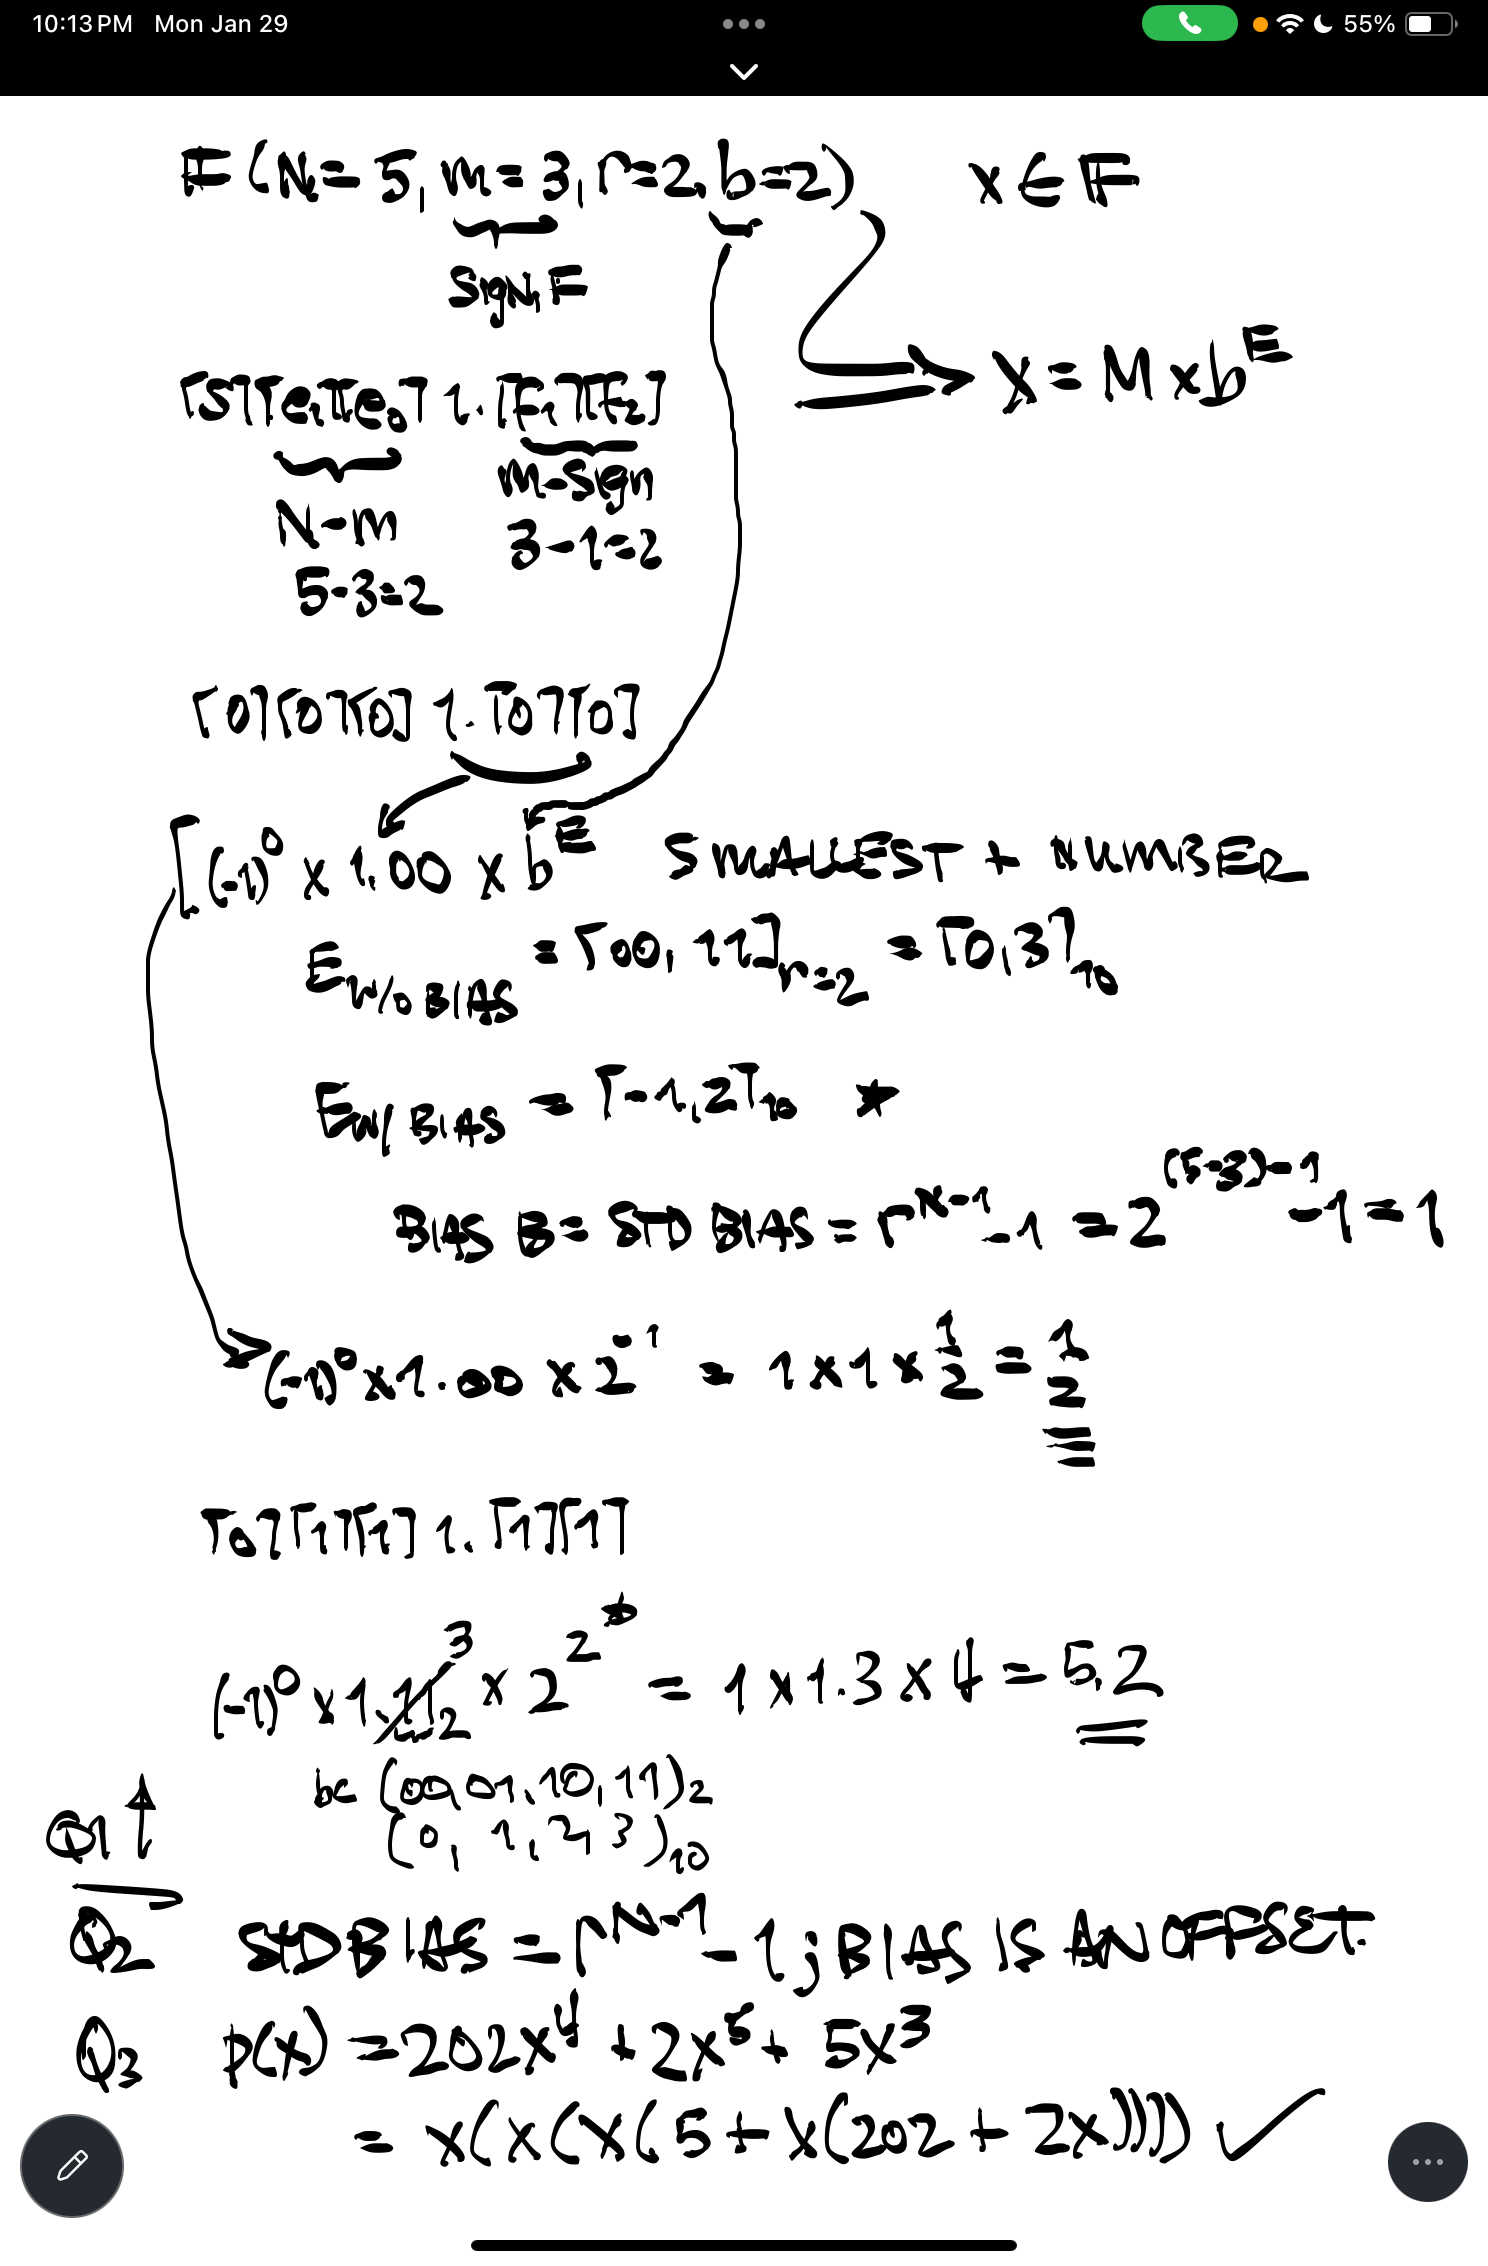 10:13 PM Mon Jan 29 55%
F(N=5, m=3, r=2, b=2) x∈F
SigN.F
x = M x b^E
[S][e₁][e₀] 1.[F₁][F₂]
N-m m-sign
5-3=2 3-1=2
[0][0][0] 1.[0][0]
[(-1)^0 x 1.00 x b^E SMALLEST + NUMBER
E_{w/o BIAS} = [00, 11]_{r=2} = [0,3]_{10}
E_{w/ BIAS} = [-1,2]_{10} *
BIAS B = STD BIAS = r^{N-1} - 1 = 2^{(5-3)-1} - 1 = 1
(-1)^0 x 1.00 x 2^{-1} = 1 x 1 x 1/2 = 1/2
[0][1][1] 1.[1][1]
(-1)^0 x 1.11₂ 3 x 2^{2*} = 1 x 1.3 x 4 = 5.2
bc (00,01,10,11)₂
Q1 ↑ (0, 1, 2, 3)₁₀
Q2 STD BIAS = r^{N-1} - 1; BIAS IS AN OFFSET.
Q3 p(x) = 202x^4 + 2x^5 + 5x^3
= x(x(x(5 + x(202 + 2x)))) ✓